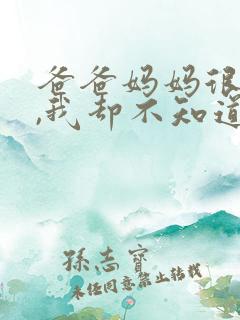 爸爸妈妈很
,我却不知道
孫志寶
未经同意禁止转载